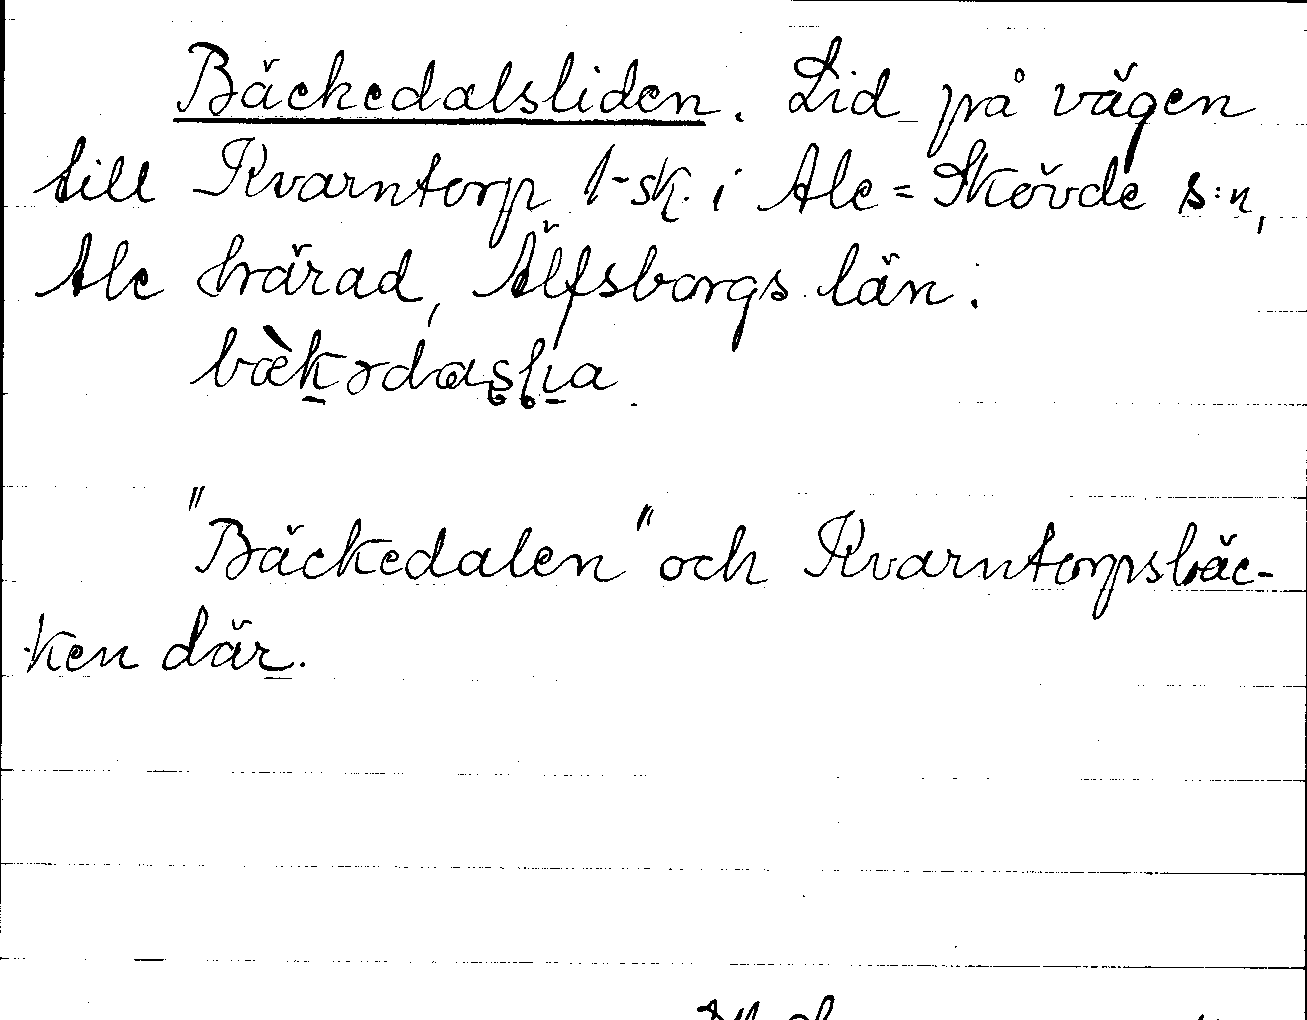 Bäckedalsliden. Lid på vägen
till Kvarntorp 1-sk. i Ale=Skövde s:n,
Ale härad, Älfsborgs län.
"Bäckedalen" och Kvarntorpsbäc-
ken där.